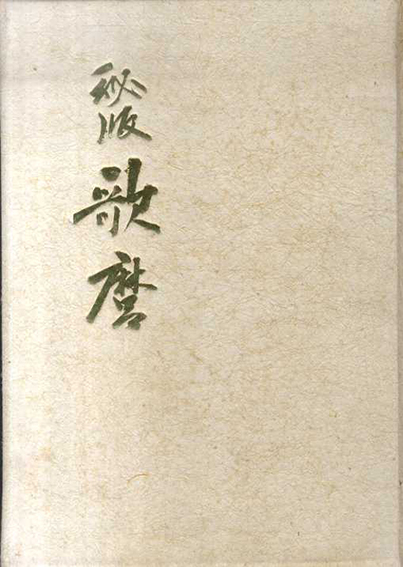 秘版
歌麿